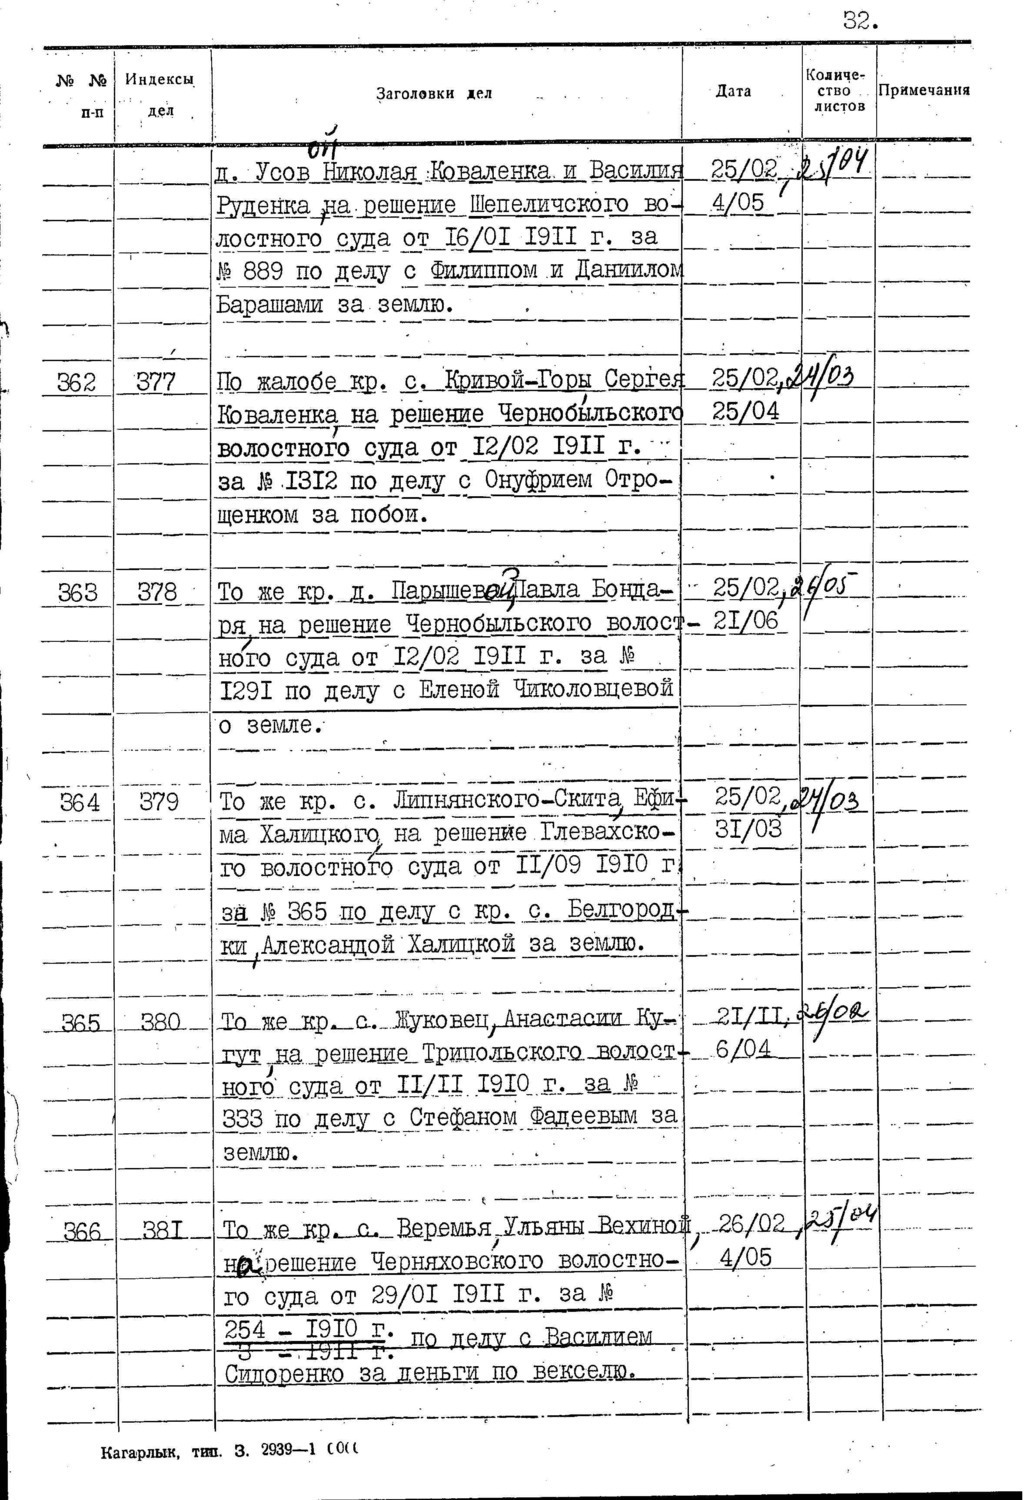 32.
№ № Индексы Заголовки дел Дата Количе- Примечания
п-п дел ство
листов
ой
д. Усов Николая Коваленка и Василия 25/02, 25/04
Руденка, на решение Шепеличского во- 4/05
лостного суда от 16/01 1911 г. за
№ 889 по делу с Филиппом и Даниилом
Барашами за землю.
362 377 По жалобе кр. с. Кривой-Горы, Сергея 25/02, 24/03
Коваленка, на решение Чернобыльского 25/04
волостного суда от 12/02 1911 г.
за № 1312 по делу с Онуфрием Отро-
щенком за побои.
363 378 То же кр. д. Парышевой, Павла Бонда- 25/02, 26/05
ря, на решение Чернобыльского волост- 21/06
ного суда от 12/02 1911 г. за №
1291 по делу с Еленой Чиколовцевой
о земле.
364 379 То же кр. с. Липнянского-Скита, Ефи- 25/02, 24/03
ма Халицкого, на решение Глевахско- 31/03
го волостного суда от 11/09 1910 г.
за № 365 по делу с кр. с. Белгород-
ки, Александой Халицкой за землю.
365 380 То же кр. с. Жуковец, Анастасии Ку- 21/11, 26/02
гут, на решение Трипольского волост- 6/04
ного суда от 11/11 1910 г. за №
333 по делу с Стефаном Фадеевым за
землю.
366 381 То же кр. с. Веремья, Ульяны Вехиной, 26/02, 25/04
на решение Черняховского волостно- 4/05
го суда от 29/01 1911 г. за №
254 – 1910 г. по делу с Василием
3 – 1911 г.
Сидоренко за деньги по векселю.
Кагарлык, тип. З. 2939—1